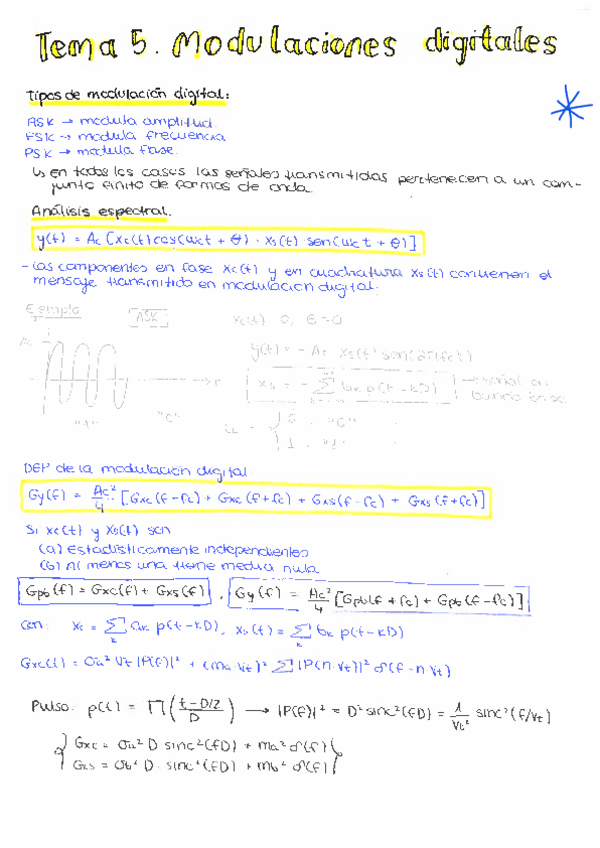 Tema 5. Modulaciones digitales
Tipos de modulación digital:
ASK → modula amplitud
FSK → modula frecuencia
PSK → modula fase
↳ en todos los casos las señales transmitidas pertenecen a un con-
junto finito de formas de onda.
Análisis espectral.
y(t) = Ac [xc(t) cos(ωct + θ) - xs(t) sen(ωct + θ)]
- Las componentes en fase xc(t) y en cuadratura xs(t) contienen el
mensaje transmitido en modulación digital.
Ejemplo ASK xc(t) 0, θ=0
Ac
y(t) = - Ac xs(t) sen(2πfct)
xs = - Σ bk p(t-kD) → señal en
banda base
"1" "0"
0 "0"
1
DEP de la modulación digital
Gy(f) = Ac²/4 [Gxc(f-fc) + Gxc(f+fc) + Gxs(f-fc) + Gxs(f+fc)]
Si xc(t) y xs(t) son
(a) Estadísticamente independientes
(b) Al menos una tiene media nula
Gpb(f) = Gxc(f) + Gxs(f) , Gy(f) = Ac²/4 [Gpb(f+fc) + Gpb(f-fc)]
con: xc = Σk ak p(t-kD), xs(t) = Σk bk p(t-kD)
Gxc(f) = σa² Vt |P(f)|² + (ma·Vt)² Σ |P(n·Vt)|² δ(f-n·Vt)
Pulso: p(t) = Π((t-D/2)/D) → |P(f)|² = D² sinc²(fD) = 1/Vt² sinc²(f/Vt)
Gxc = σa² D sinc²(fD) + ma² δ(f)
Gxs = σb² D · sinc²(fD) + mb² δ(f)